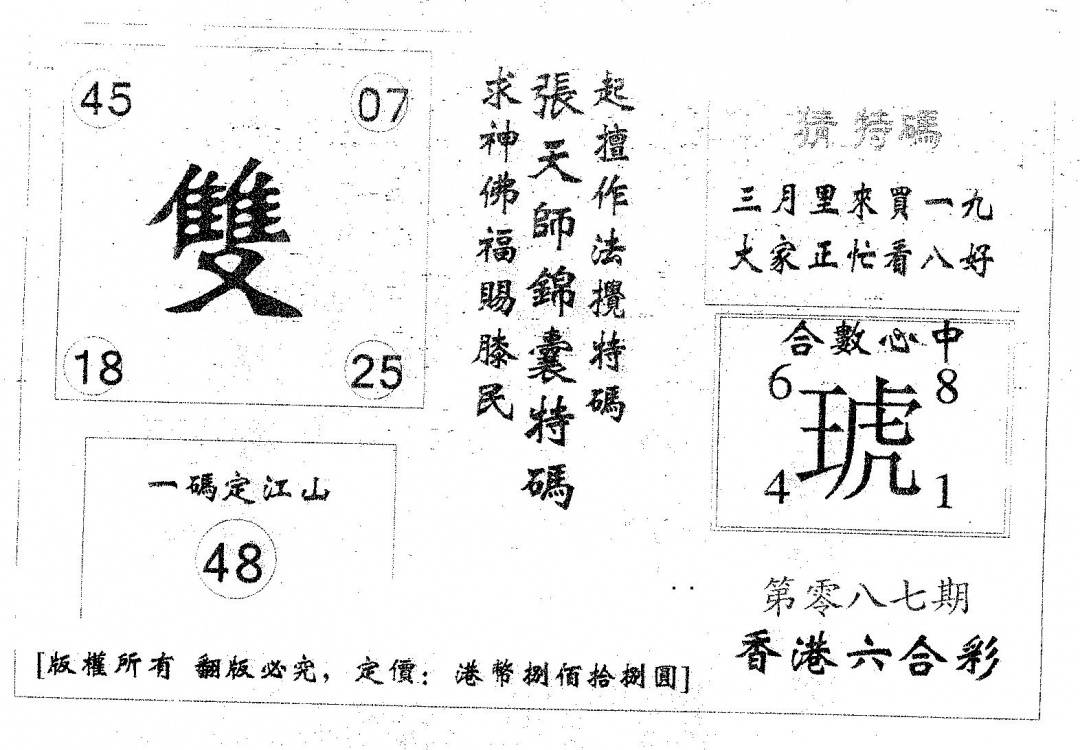 45 07
雙
18 25
一碼定江山
48
起擅作法攪特碼
張天師錦囊特碼
求神佛福賜膝民
猜特碼
三月里來買一九
大家正忙看八好
合數必中
6 8
琥
4 1
第零八七期
香港六合彩
[版權所有 翻版必究，定價：港幣捌佰拾捌圓]